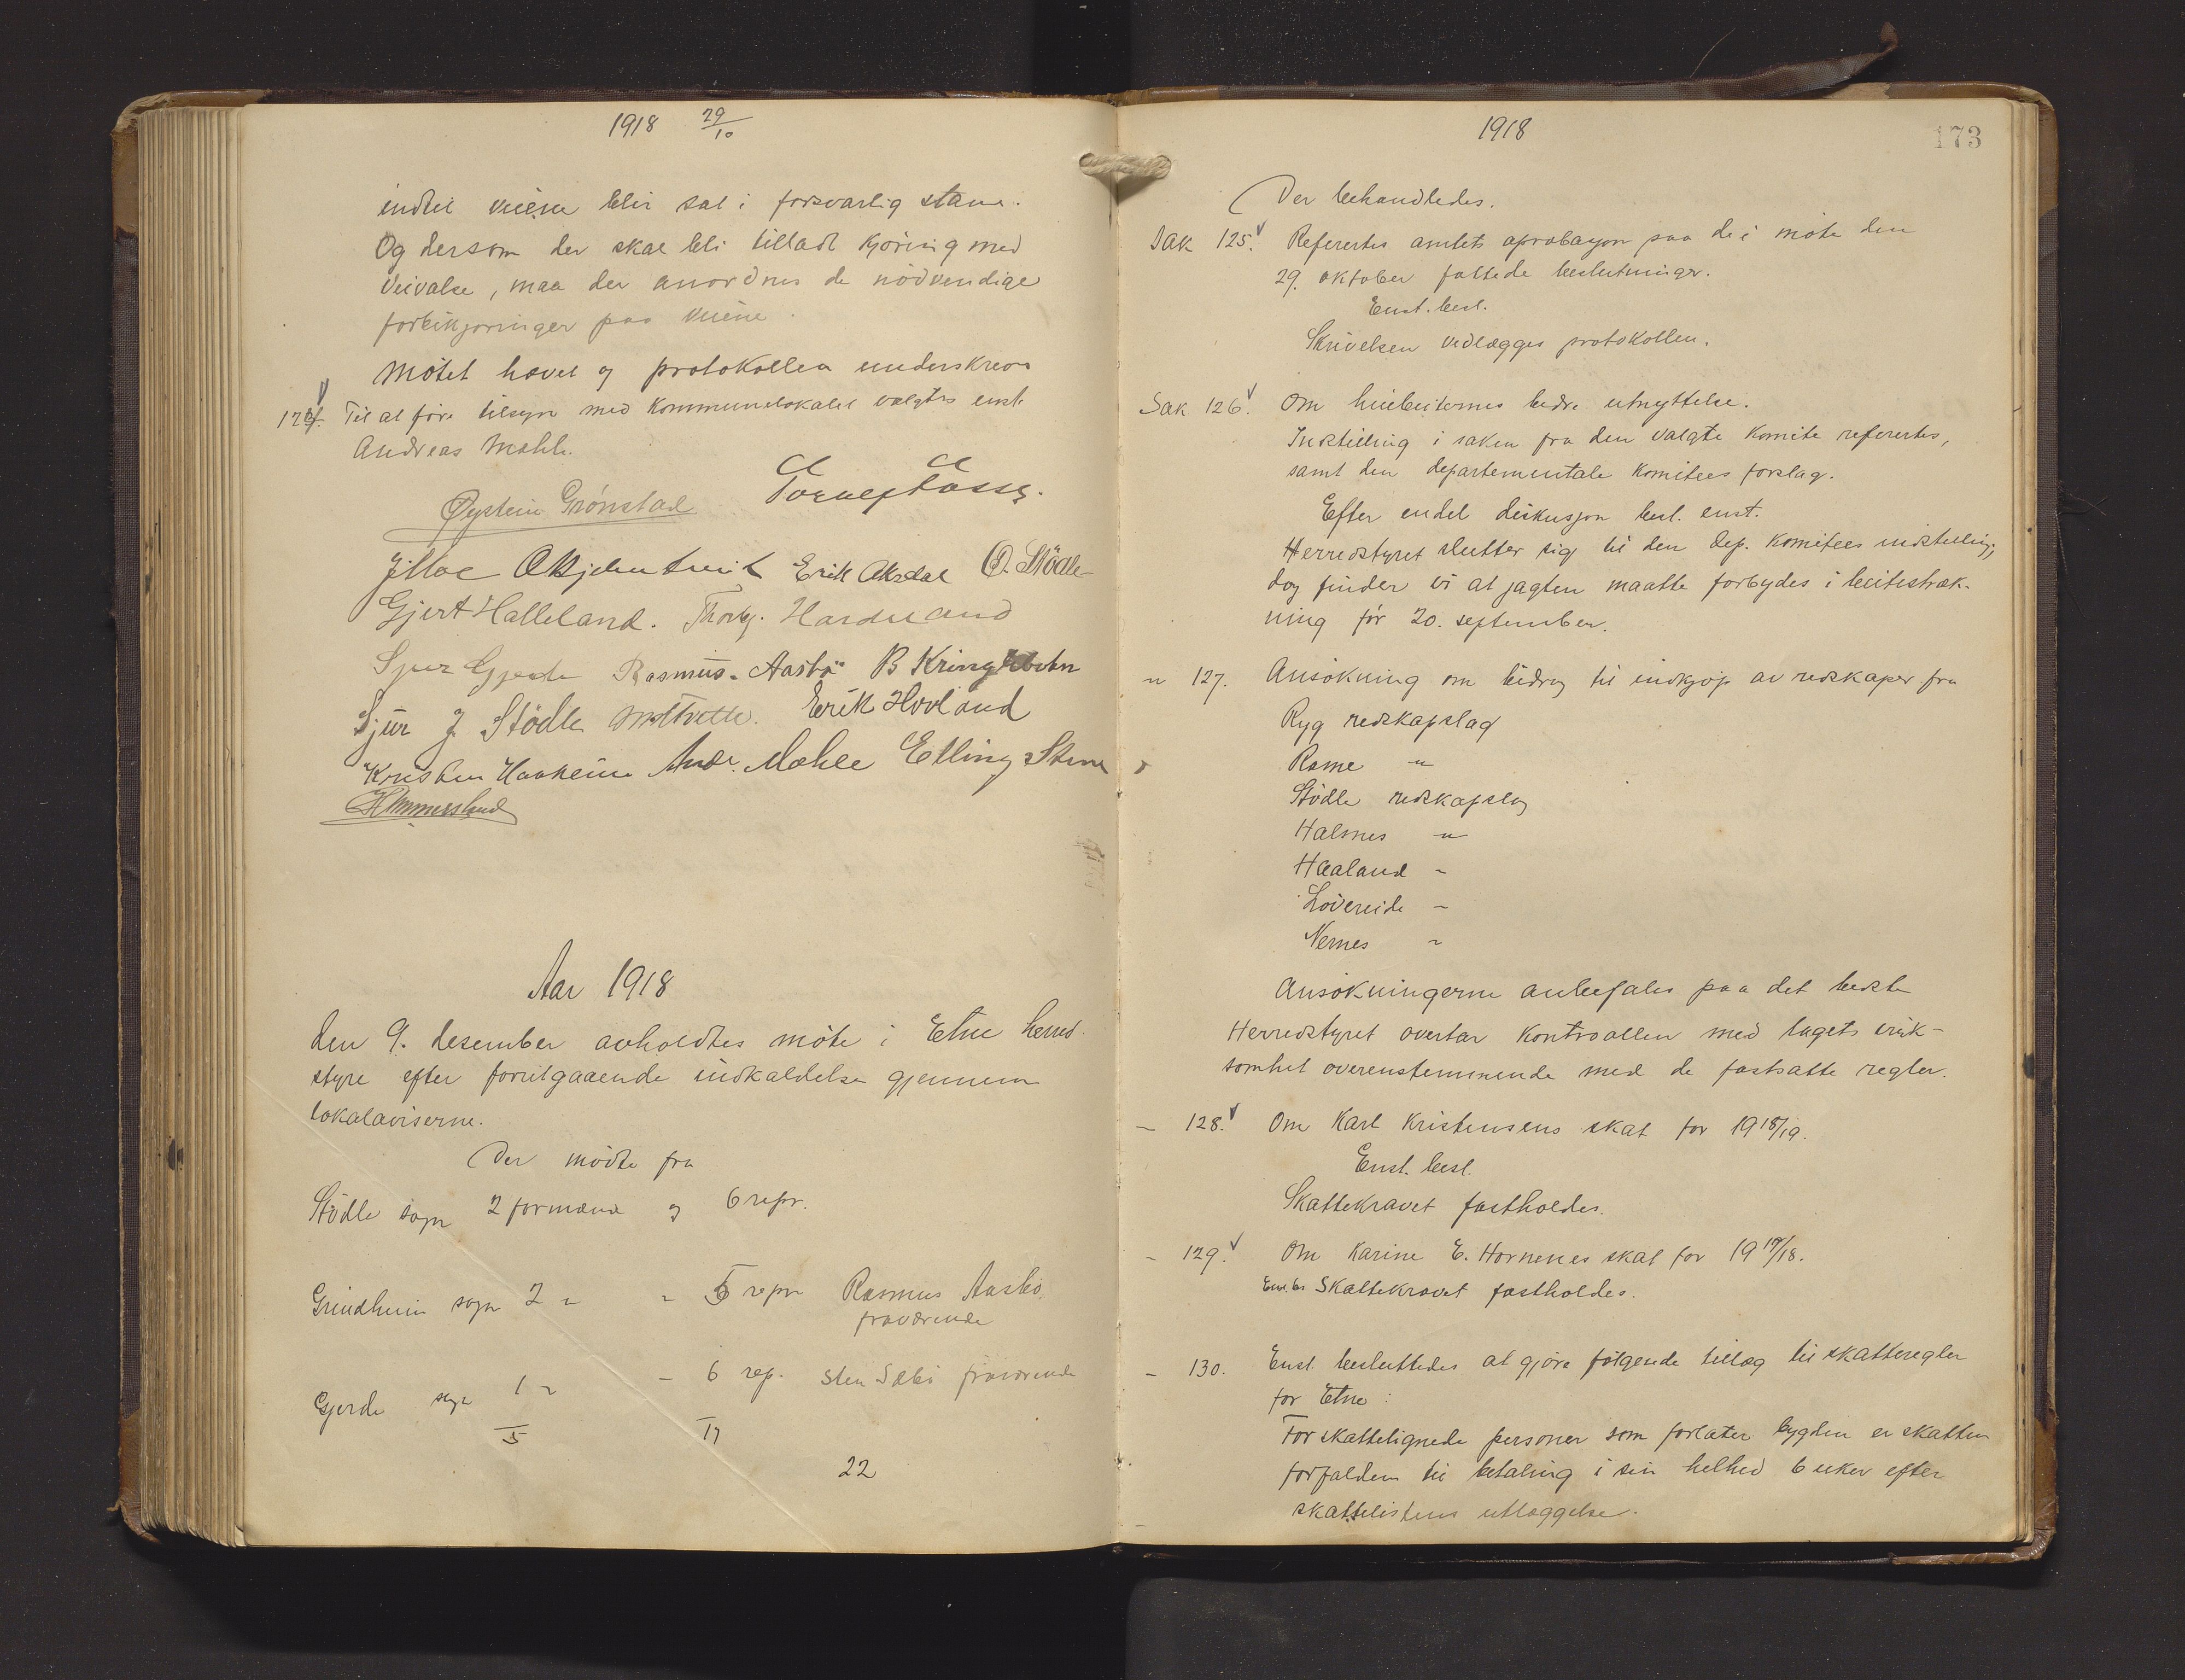 1918 29/10
indtil veiene blir sat i forsvarlig stann.
Og dersom der skal bli tilladt kjøring med
Veivalse, maa der anordnes de nödvendige
forbikjøringer paa veiene.
Møtet hævet og protokollen underskreven
124. Til at føre tilsyn med Kommunelokalet valgtes enst.
Andreas Mæhle.
Øystein Grönstad
Erik Aksdal O. Stödle
Gjert Halleland. Thorbj. Hardeland
Rasmus Aasbö B Kringlebotn
Sjur J. Stödle Erik Hovland
Kristen Haaheim Andr. Mæhle Elling Stene
Aar 1918
den 9. desember avholdtes möte i Etne herred-
styre efter forutgaaende indkaldelse gjennem
lokalaviserne.
Der mödte fra
Stödle sogn 2 formænd og 6 repr.
Grindheim sogn 2 " " 5 repr Rasmus Aasbö
fraværende
Gjerde sogn 1 " - 6 rep. Sten Sæbö fraværende
5 17
22
1918
173
Der behandledes.
Sak 125. Referertes amtets aprobasjon paa de i møte den
29. oktober fattede beslutninger.
Enst. besl.
Skrivelsen vedlægges protokollen.
Sak 126. Om heiebeiternes bedre utnyttelse.
Instilling i saken fra den valgte komite referertes,
samt den departementale komitees forslag.
Efter endel diskusjon besl. enst.
Herredstyret slutter sig til den dep. komitees indstilling,
dog finder vi at jagten maatte forbydes i beitestræk-
ning før 20. september.
" 127. Ansökning om bidrag til indkjøp av redskaper fra
Ryg redskapslag
Rame "
Stödle redskapslag
Halsnes "
Haaland "
Lövereide "
Nernes "
Ansökningerne anbefales paa det bedste
Herredstyret overtar kontroallen med lagets virk-
somhet overenstemmende med de fastsatte regler.
- 128. Om Karl Kristensens skat for 1918/19.
Enst. besl.
Skattekravet fastholdes.
- 129. Om Karine E. Hornenes skat for 1917/18.
Enst. bs Skattekravet fastholdes.
- 130. Enst. besluttedes at gjøre følgende tillæg til skatteregler
for Etne:
For skattelignede personer som forlater bygden er skatten
forfalden til betaling i sin helhed 6 uker efter
skattelistens utlæggelse.